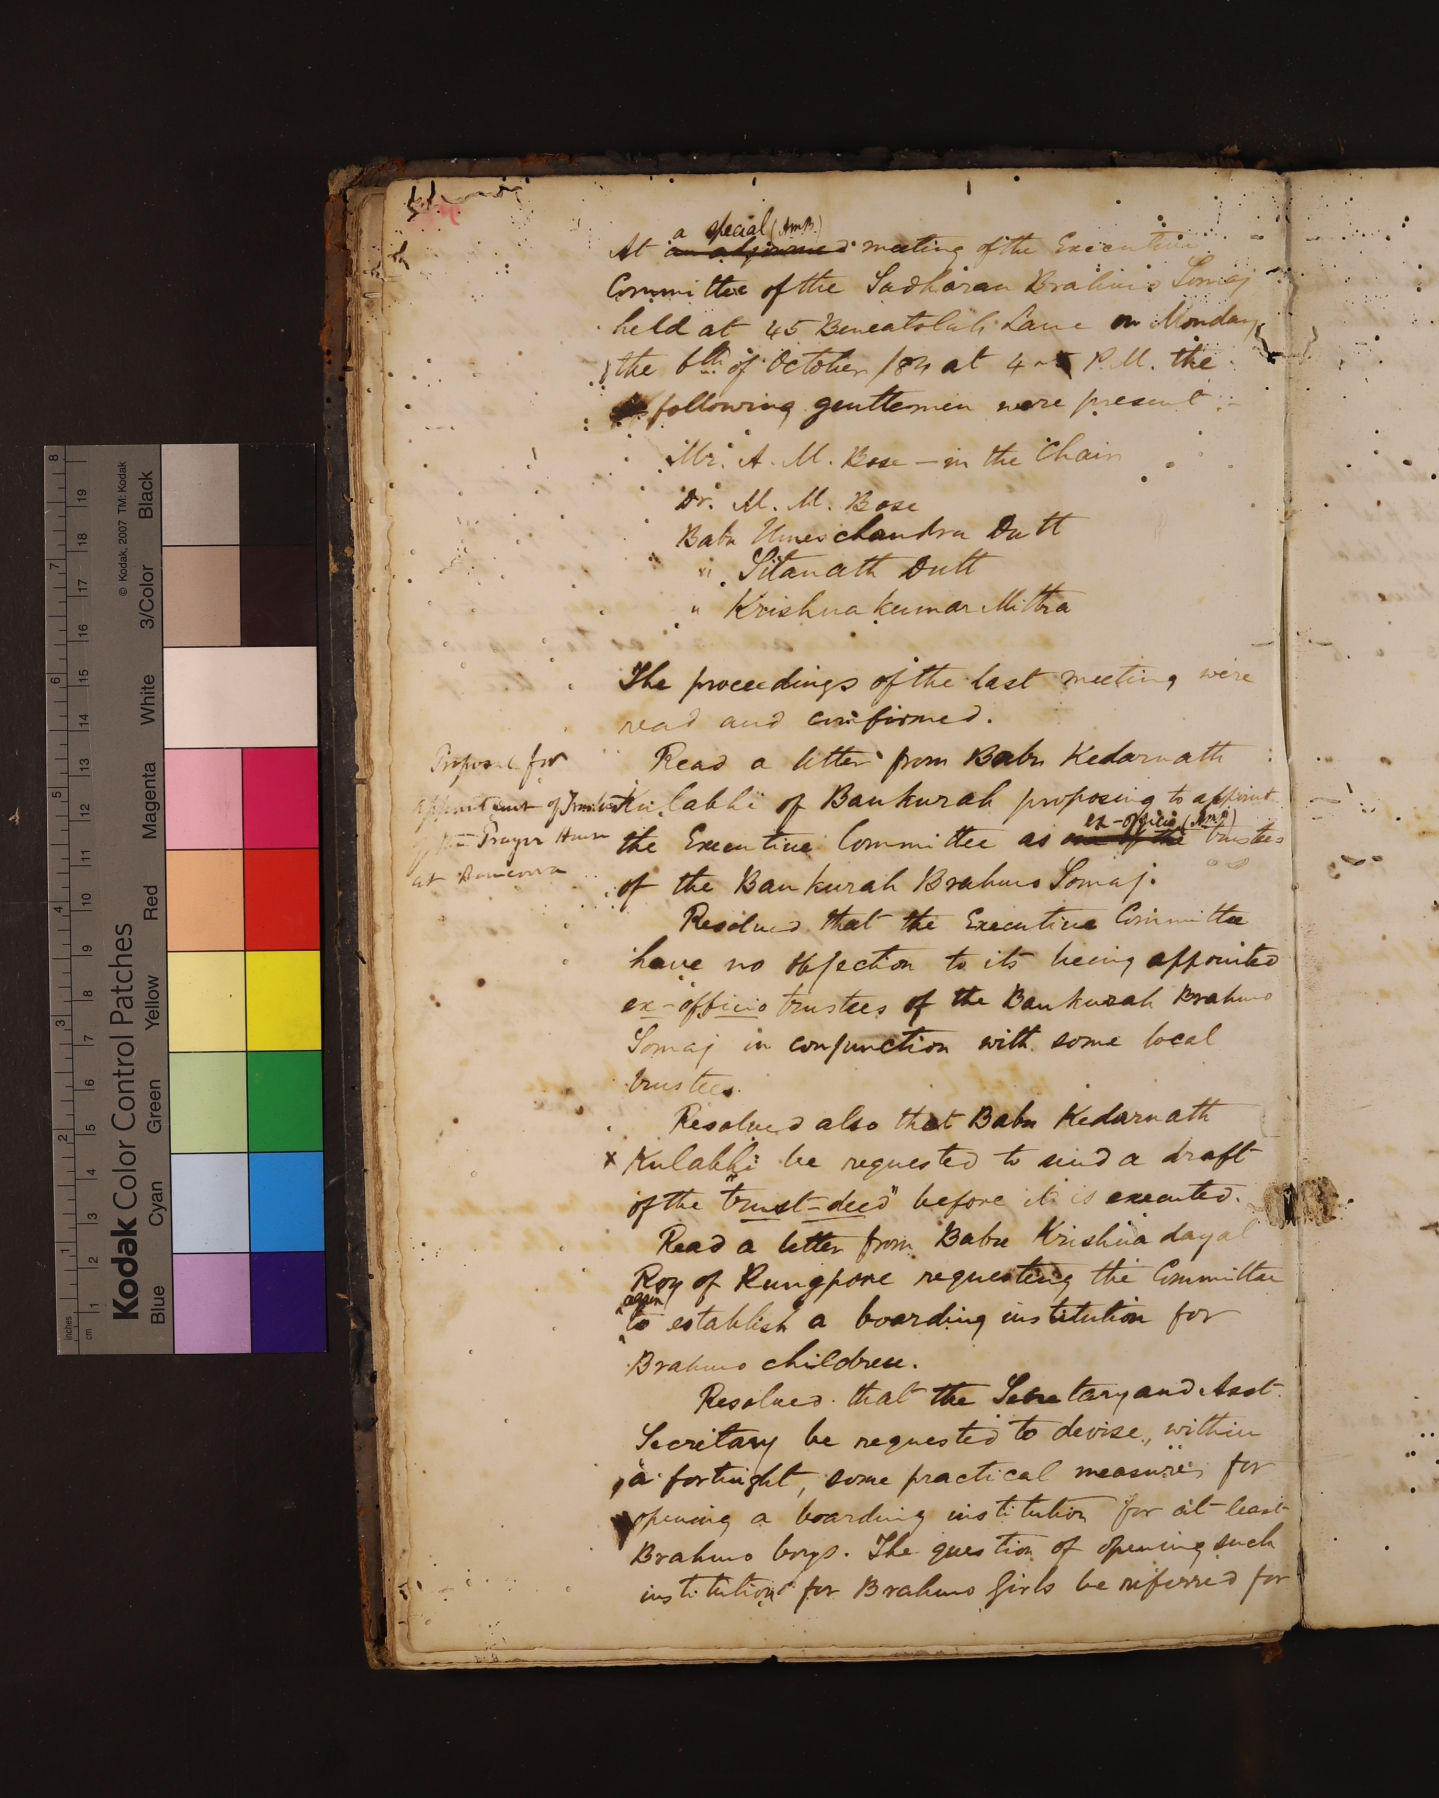 a special (AmB.)
At an adjourned meeting of the Executive
Committee of the Sadharan Brahmo Somaj
held at 45 Beneatolah Lane on Monday
the 6th of October /84 at 4 P.M. the
following gentlemen were present :-
Mr. A. M. Bose — in the Chair
Dr. M. M. Bose
Babu Umes chandra Dutt
" Sitanath Dutt
" Krishna kumar Mittra
The proceedings of the last meeting were
read and confirmed.
Proposal for
appointment of Trustees
Prayer House
at
Read a letter from Babu Kedarnath
Kulabhi of Bankurah proposing to appoint
ex-officio (AmB)
the Executive Committee as one of the trustees
of the Bankurah Brahmo Somaj.
Resolved that the Executive Committee
have no objection to its being appointed
ex-officio trustees of the Bankurah Brahmo
Somaj in conjunction with some local
trustees.
Resolved also that Babu Kedarnath
x Kulabhi be requested to send a draft
of the "trust-deed" before it is executed.
Read a letter from Babu Krishna dayal
Roy of Rungpore requesting the Committee
again
to establish a boarding institution for
Brahmo children.
Resolved that the Secretary and Asst.
Secretary be requested to devise, within
a fortnight, some practical measures for
opening a boarding institution for at least
Brahmo boys. The question of opening such
institution for Brahmo Girls be referred for
Kodak Color Control Patches
© Kodak, 2007 TM: Kodak
Blue Cyan Green Yellow Red Magenta White 3/Color Black
inches 1 2 3 4 5 6 7 8
cm 1 2 3 4 5 6 7 8 9 10 11 12 13 14 15 16 17 18 19